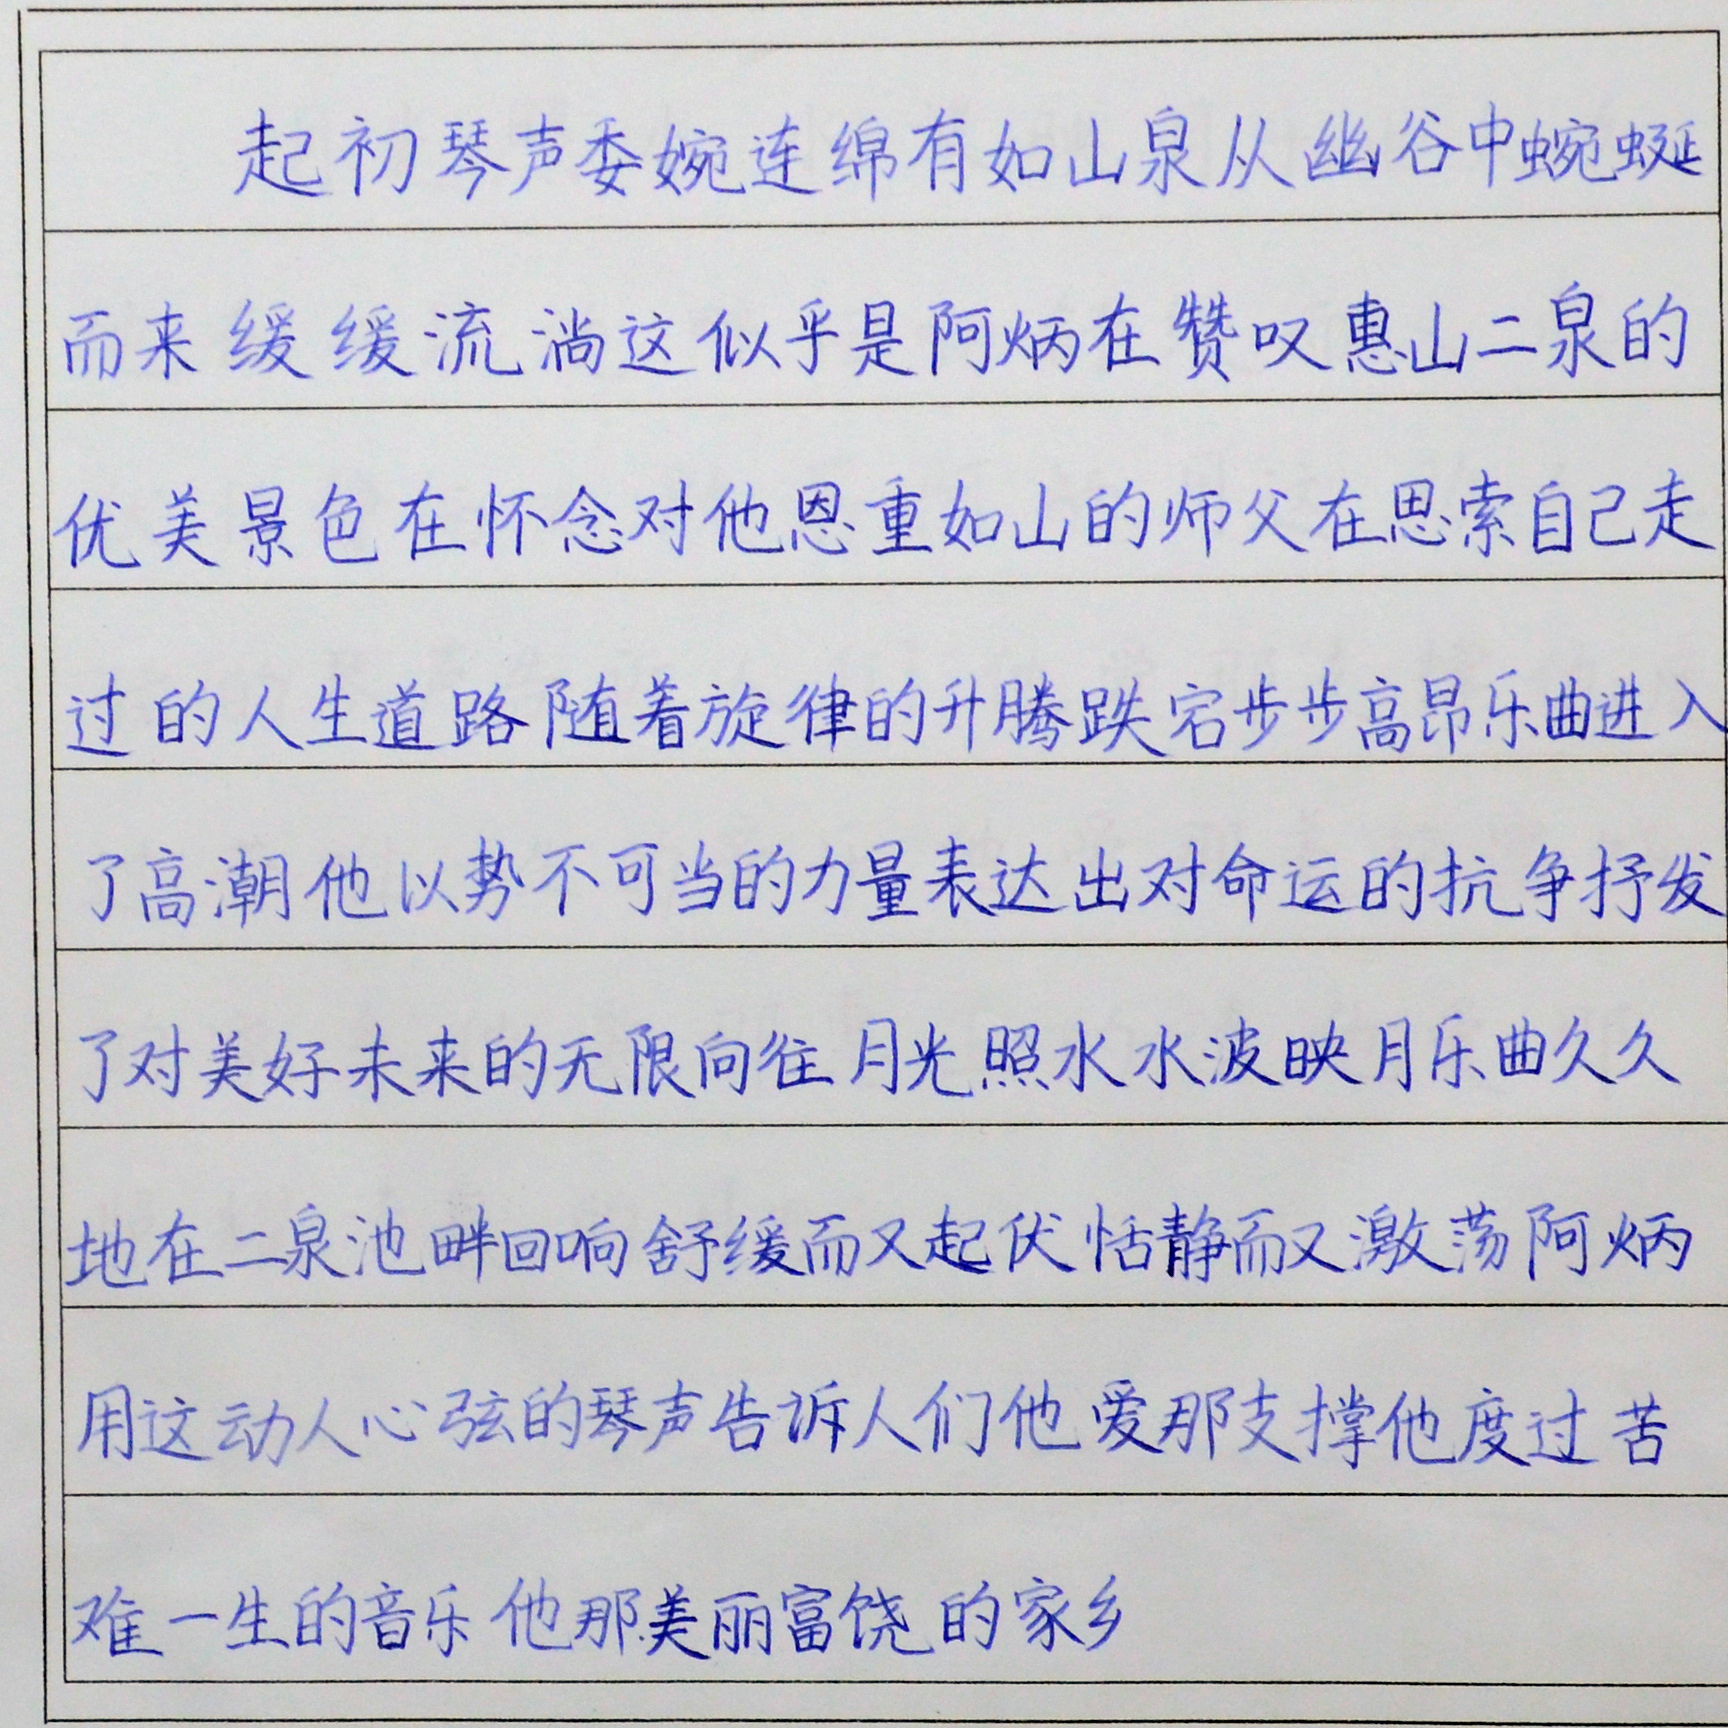 起初琴声委婉连绵有如山泉从幽谷中蜿蜒
而来缓缓流淌这似乎是阿炳在赞叹惠山二泉的
优美景色在怀念对他恩重如山的师父在思索自己走
过的人生道路随着旋律的升腾跌宕步步高昂乐曲进入
了高潮他以势不可当的力量表达出对命运的抗争抒发
了对美好未来的无限向往月光照水水波映月乐曲久久
地在二泉池畔回响舒缓而又起伏恬静而又激荡阿炳
用这动人心弦的琴声告诉人们他爱那支撑他度过苦
难一生的音乐他那美丽富饶的家乡